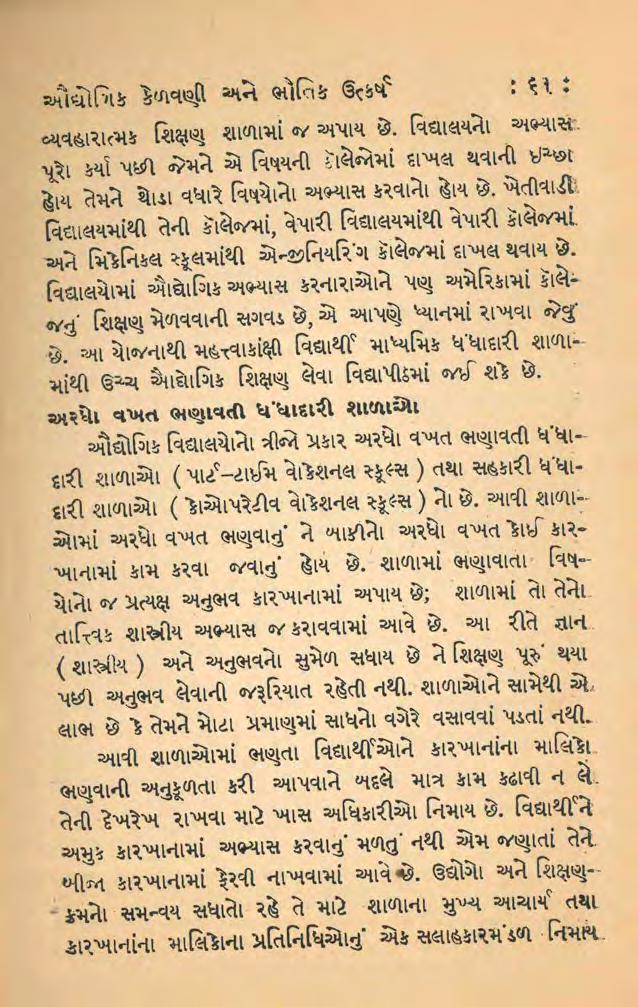 ઔદ્યોગિક કેળવણી અને ભૌતિક ઉત્કર્ષ : ૬૧ :
વ્યવહારાત્મક શિક્ષણ શાળામાં જ અપાય છે. વિદ્યાલયનો અભ્યાસ
પૂરો કર્યા પછી જેમને એ વિષયની કૉલેજોમાં દાખલ થવાની ઇચ્છા
હોય તેમને થોડા વધારે વિષયોનો અભ્યાસ કરવાનો હોય છે. ખેતીવાડી
વિદ્યાલયમાંથી તેની કૉલેજમાં, વેપારી વિદ્યાલયમાંથી વેપારી કૉલેજમાં
અને મિકેનિકલ સ્કૂલમાંથી એન્જીનિયરિંગ કૉલેજમાં દાખલ થવાય છે.
વિદ્યાલયોમાં ઔદ્યોગિક અભ્યાસ કરનારાઓને પણ અમેરિકામાં કૉલે-
જનું શિક્ષણ મેળવવાની સગવડ છે, એ આપણે ધ્યાનમાં રાખવા જેવું
છે. આ યોજનાથી મહત્ત્વાકાંક્ષી વિદ્યાર્થી માધ્યમિક ધંધાદારી શાળા-
માંથી ઉચ્ચ ઔદ્યોગિક શિક્ષણ લેવા વિદ્યાપીઠમાં જઈ શકે છે.
અરધો વખત ભણાવતી ધંધાદારી શાળાઓ
ઔદ્યોગિક વિદ્યાલયોનો ત્રીજો પ્રકાર અરધો વખત ભણાવતી ધંધા-
દારી શાળાઓ ( પાર્ટ-ટાઈમ વોકેશનલ સ્કૂલ્સ ) તથા સહકારી ધંધા-
દારી શાળાઓ ( કોઓપરેટીવ વોકેશનલ સ્કૂલ્સ ) નો છે. આવી શાળા-
ઓમાં અરધો વખત ભણવાનું ને બાકીનો અરધો વખત કોઈ કાર-
ખાનામાં કામ કરવા જવાનું હોય છે. શાળામાં ભણાવાતા વિષ-
યોનો જ પ્રત્યક્ષ અનુભવ કારખાનામાં અપાય છે; શાળામાં તો તેનો
તાત્ત્વિક શાસ્ત્રીય અભ્યાસ જ કરાવવામાં આવે છે. આ રીતે જ્ઞાન
( શાસ્ત્રીય ) અને અનુભવનો સુમેળ સધાય છે ને શિક્ષણ પૂરું થયા
પછી અનુભવ લેવાની જરૂરિયાત રહેતી નથી. શાળાઓને સામેથી એ
લાભ છે કે તેમને મોટા પ્રમાણમાં સાધનો વગેરે વસાવવાં પડતાં નથી.
આવી શાળાઓમાં ભણતા વિદ્યાર્થીઓને કારખાનાંના માલિકો
ભણવાની અનુકૂળતા કરી આપવાને બદલે માત્ર કામ કઢાવી ન લે
તેની દેખરેખ રાખવા માટે ખાસ અધિકારીઓ નિમાય છે. વિદ્યાર્થીને
અમુક કારખાનામાં અભ્યાસ કરવાનું મળતું નથી એમ જણાતાં તેને
બીજા કારખાનામાં ફેરવી નાખવામાં આવે છે. ઉદ્યોગો અને શિક્ષણ-
ક્રમનો સમન્વય સધાતો રહે તે માટે શાળાના મુખ્ય આચાર્ય તથા
કારખાનાંના માલિકોના પ્રતિનિધિઓનું એક સલાહકારમંડળ નિમાય